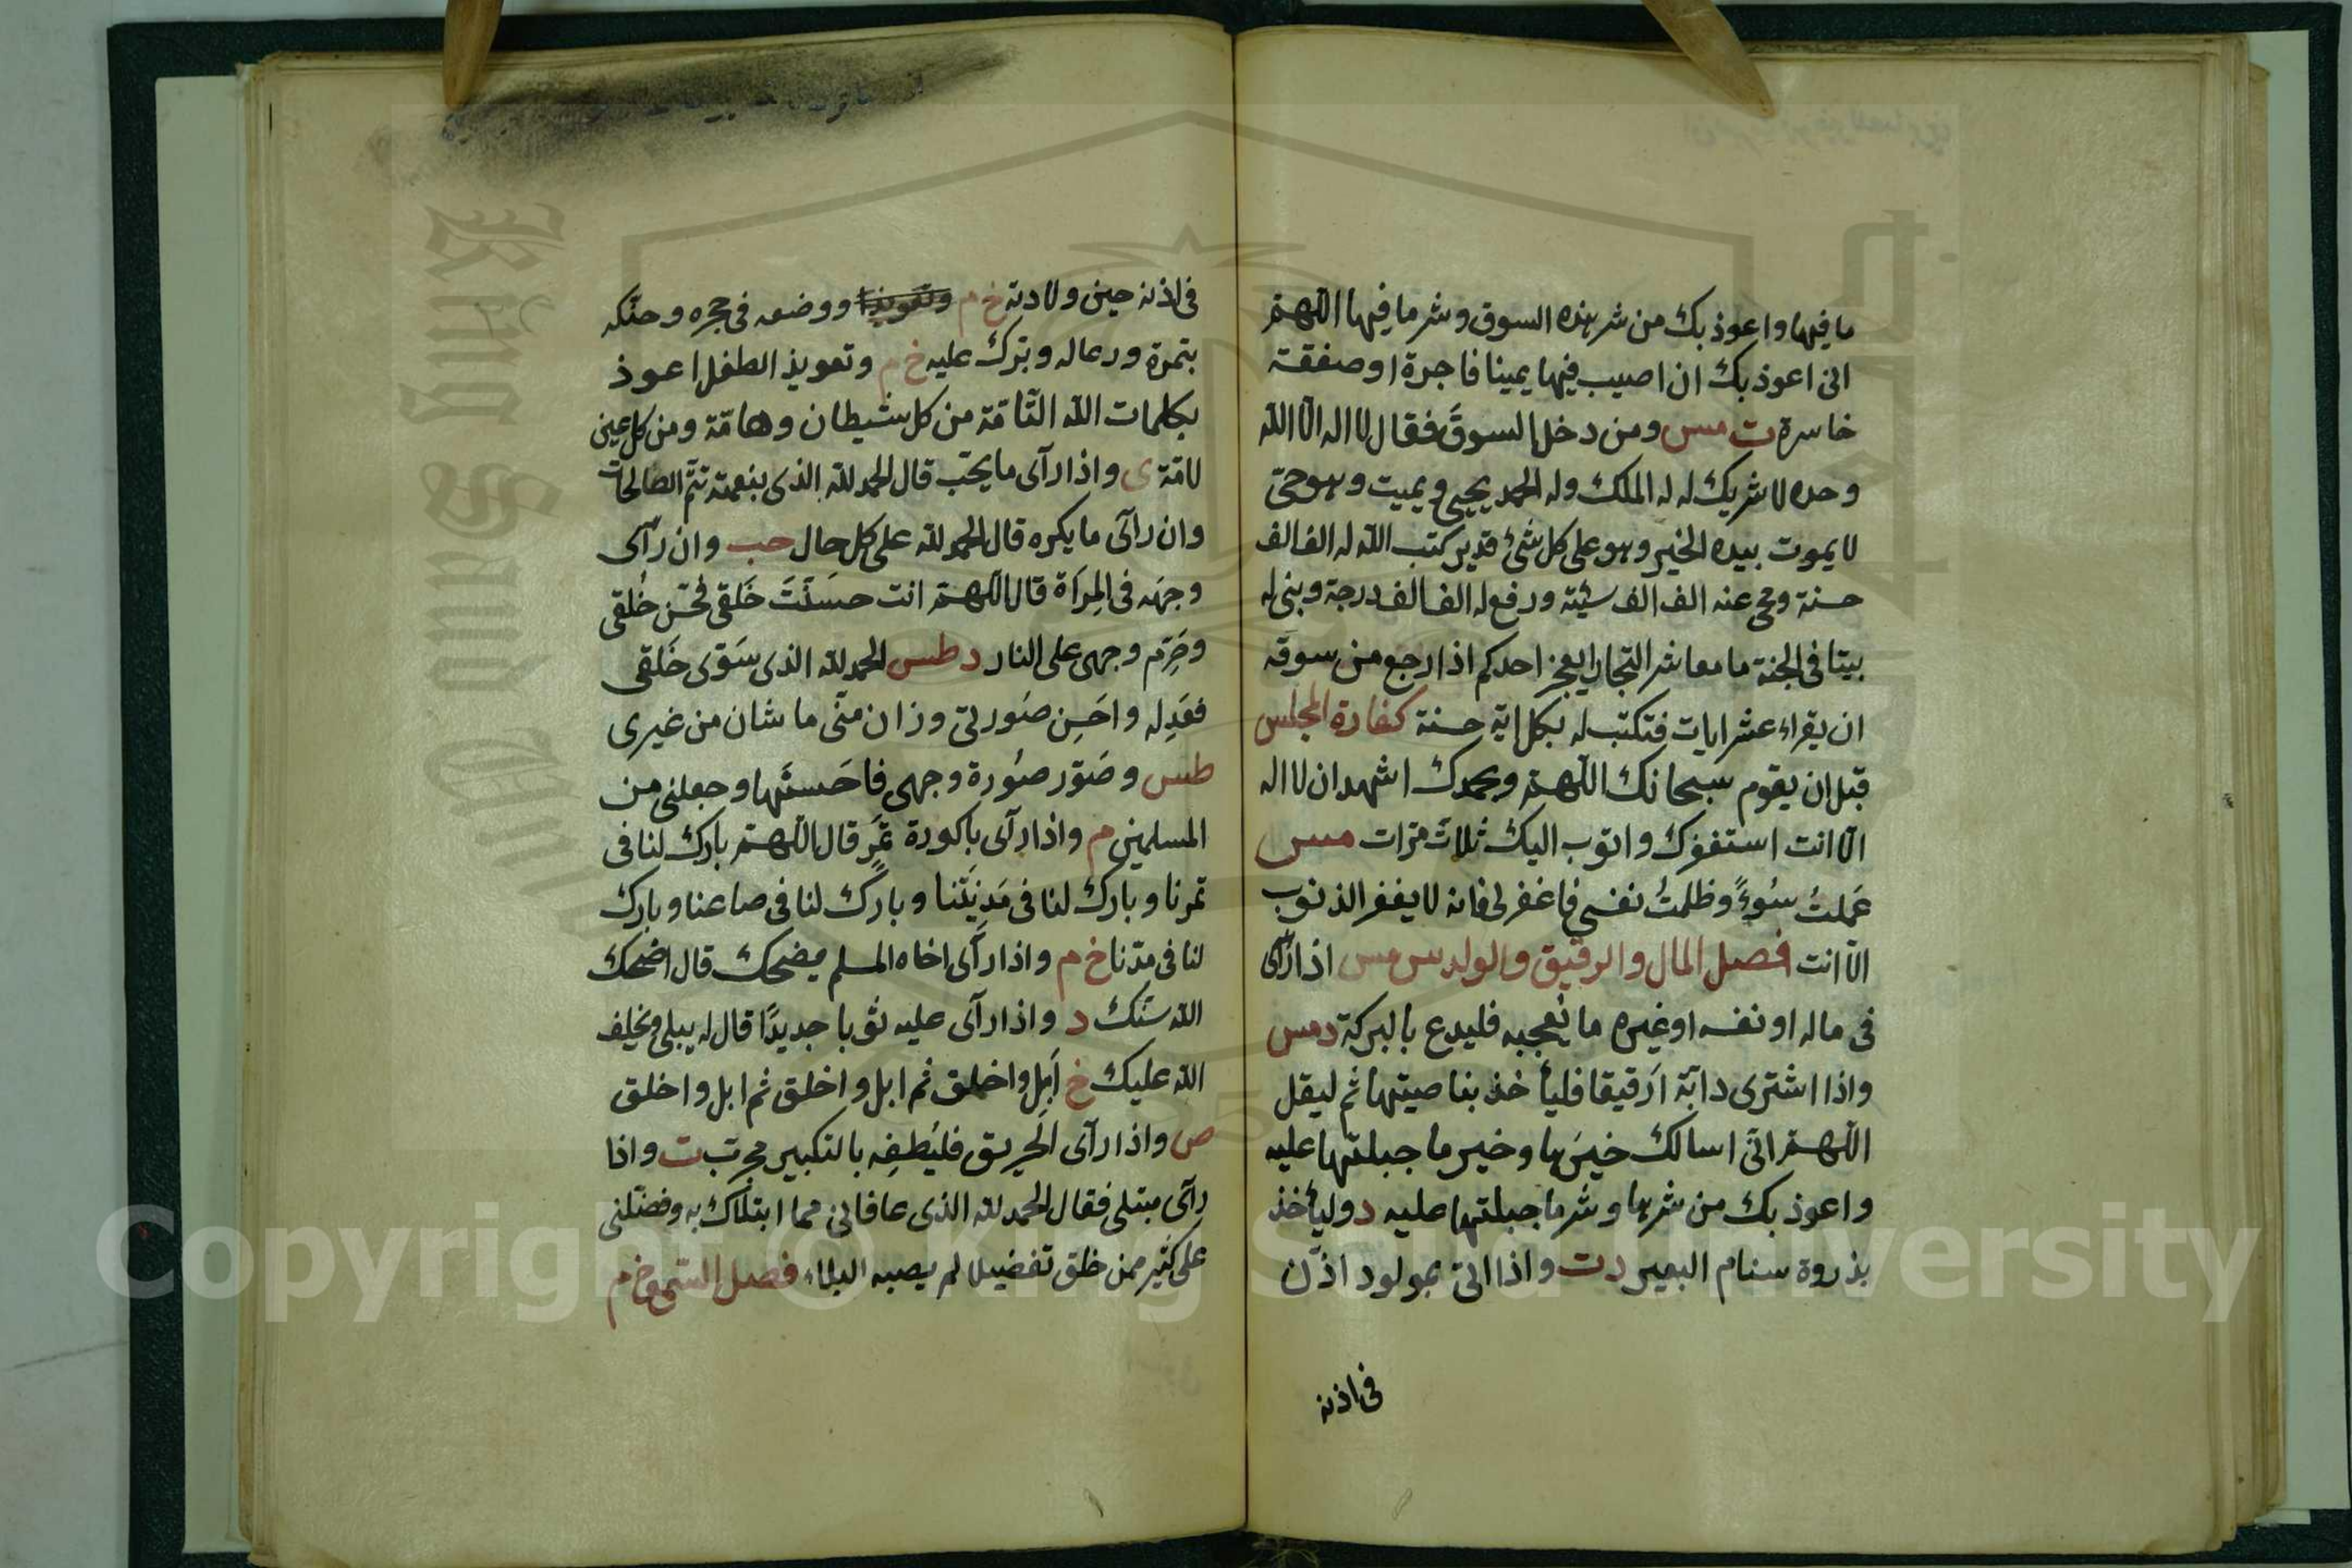 ما فيها واعوذ بك من شر هذه السوق وشر ما فيها اللهم
انى اعوذ بك ان اصيب فيها يمينا فاجرة او صفقة
خاسرة ت مس ومن دخل السوق فقال لا اله الا الله
وحده لا شريك له له الملك وله الحمد يحيى ويميت وهو حى
لا يموت بيده الخير وهو على كل شئ قدير كتب الله له الف الف
حسنة ومحى عنه الف الف سيئة ورفع له الف الف درجة وبنى له
بيتا فى الجنة ما معاشر التجار ايعجز احدكم اذا رجع من سوقه
ان يقراء عشر ايات فتكتب له بكل اية حسنة كفارة المجلس
قبل ان يقوم سبحانك اللهم وبحمدك اشهد ان لا اله
الا انت استغفرك واتوب اليك ثلاث مرات مس
عَملتُ سُوءً وظلمتُ نفسى فاغفر لى فانه لا يغفر الذنوب
الا انت فصل المال والرقيق والولد س مس اذا رأى
فى ماله او نفسه او غيره ما يُعجبه فليدع بالبركة د مس
واذا اشترى دابّة ارَقيقا فليأخذ بناصيتها ثم ليقل
اللهم انّى اسالك خيرَها وخير ما جبلتها عليه
واعوذ بك من شرها وشر ما جبلتها عليه د وليأخذ
بذروة سنام البعير د ت واذا اتى بمولود اذّن
فى اذنه
فى اذنه حين ولادته خ م وتعويذا ووضعه فى حجره وحنّكه
بتمرة ودعا له وبرّك عليه خ م وتعويذ الطفل اعوذ
بكلمات الله التّامّة من كل شيطان وهامّة ومن كل عين
لامّة ى واذا رآى ما يحبّ قال الحمد لله الذى بنعمته تتمّ الصالحات
وان رآى ما يكره قال الحمد لله على كل حال حب وان رآى
وجهَه فى المِرآة قال اللهم انت حسَنْتَ خَلقى فحسّن خُلقى
وحَرّم وجهى على النار د طس الحمد لله الذى سَوّى خَلقى
فعَدِله واحَسِن صُورتى وزان منّى ما شان من غيرى
طس وصَوّر صُورة وجهى فاحَسنَها وجعلنى من
المسلمين م واذا رآى باكورة ثَمَرٍ قال اللهم بارك لنا فى
ثمرنا وبارك لنا فى مَدِينَتنا وبارك لنا فى صاعنا وبارك
لنا فى مدّنا خ م واذا رآى اخاه المسلم يضحك قال اضحك
الله سنّك د واذا رآى عليه ثوبا جديدًا قال له يبلى ويخلف
الله عليك خ اَبِل واخلق ثم ابل واخلق ثم ابل واخلق
ص واذا رآى الحريق فليُطفِه بالتكبير مجرّب ت واذا
رآى مبتلى فقال الحمد لله الذى عافانى مما ابتلاك به وفضّلنى
على كثير ممن خلق تفضيلا لم يصبه البلاء فصل السمع خ م
King Saud
Copyright © King Saud University